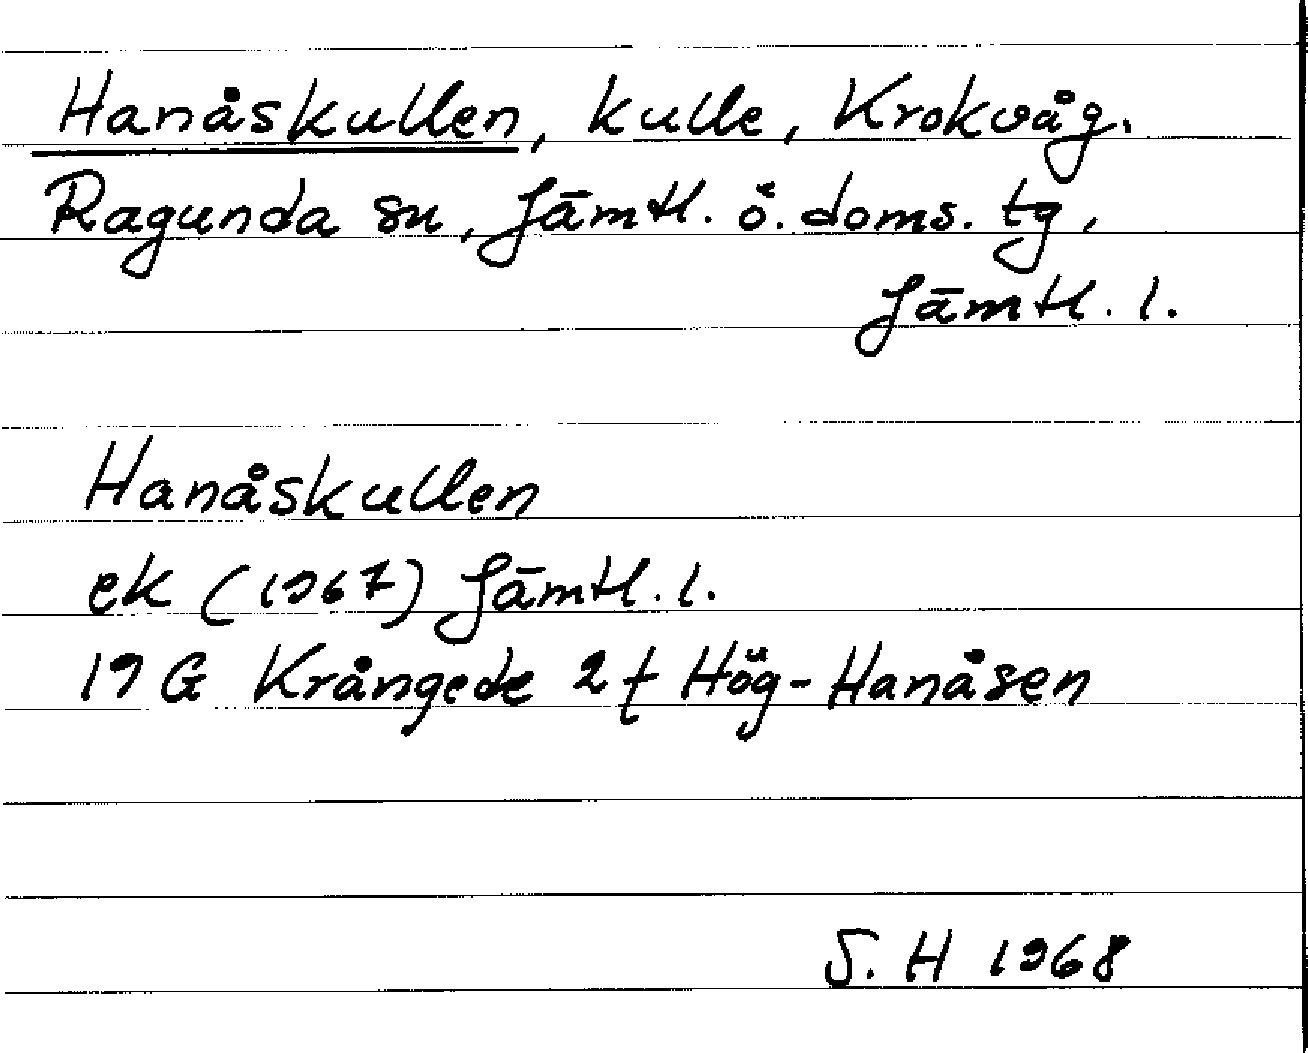 Hanåskullen, kulle, Krokvåg.
Ragunda sn, Jämtl. ö. doms. tg,
Jämtl. l.
Hanåskullen
ek (1967) Jämtl. l.
19 G Krångede 2f Hög-Hanåsen
S. H 1968